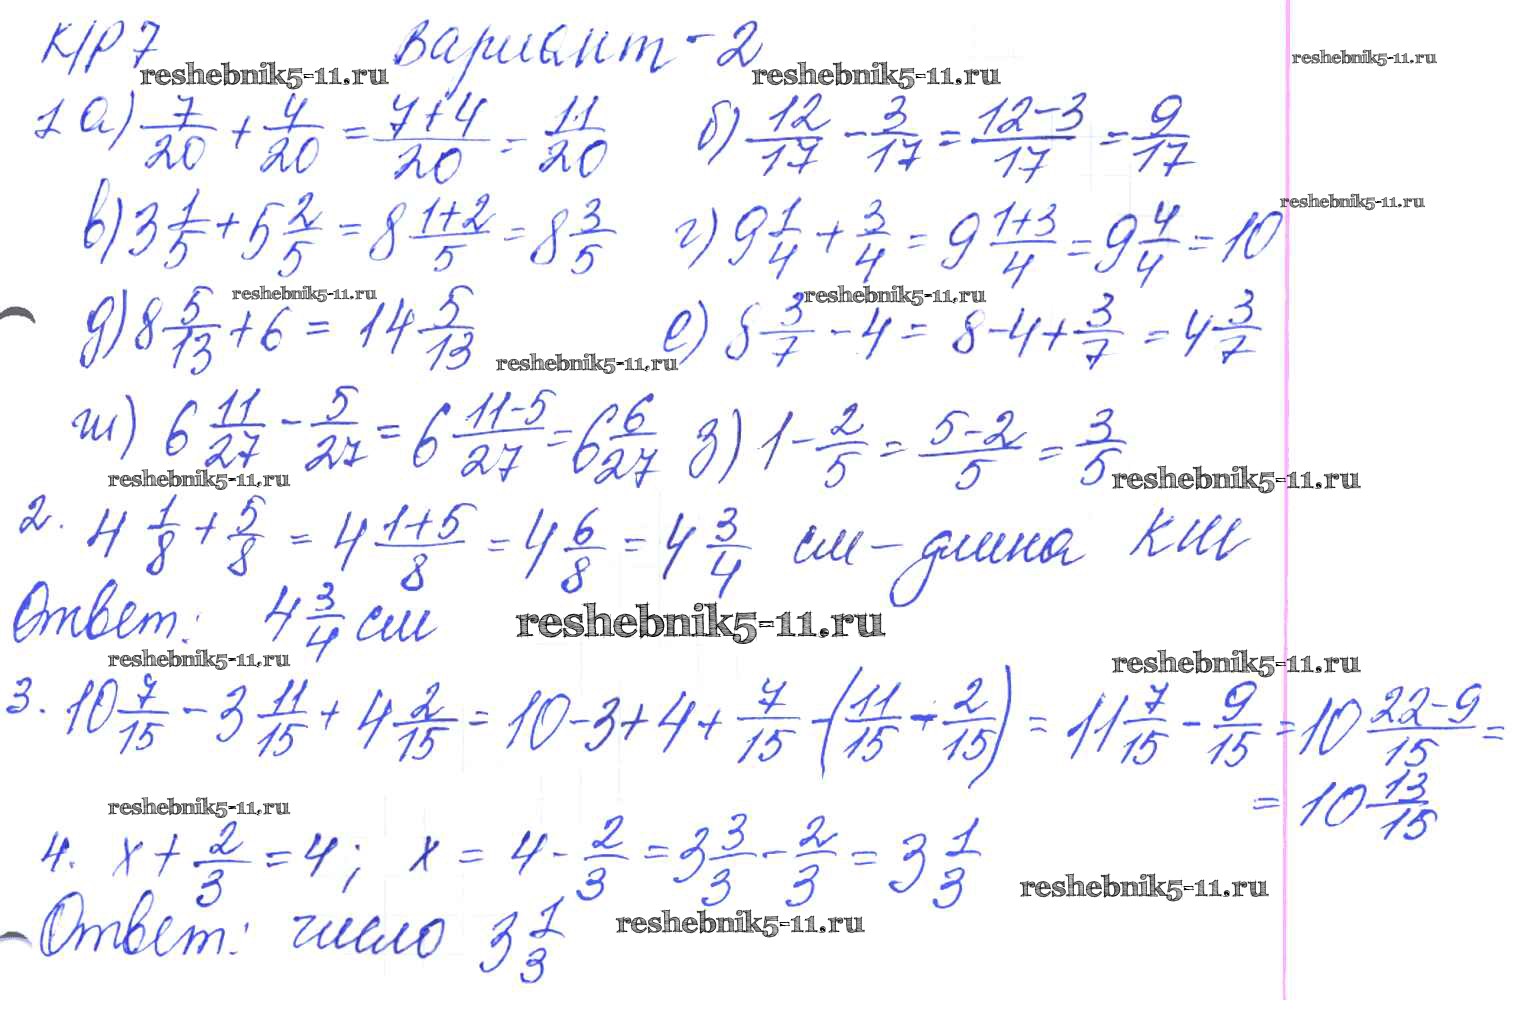 К/Р 7 Вариант - 2
reshebnik5-11.ru reshebnik5-11.ru reshebnik5-11.ru
1 а) 7/20 + 4/20 = (7+4)/20 = 11/20 б) 12/17 - 3/17 = (12-3)/17 = 9/17
в) 3 1/5 + 5 2/5 = 8 (1+2)/5 = 8 3/5 г) 9 1/4 + 3/4 = 9 (1+3)/4 = 9 4/4 = 10
reshebnik5-11.ru
reshebnik5-11.ru reshebnik5-11.ru
д) 8 5/13 + 6 = 14 5/13 е) 8 3/7 - 4 = 8-4+ 3/7 = 4 3/7
reshebnik5-11.ru
ж) 6 11/27 - 5/27 = 6 (11-5)/27 = 6 6/27 з) 1 - 2/5 = (5-2)/5 = 3/5
reshebnik5-11.ru reshebnik5-11.ru
2. 4 1/8 + 5/8 = 4 (1+5)/8 = 4 6/8 = 4 3/4 см - длина КМ
Ответ: 4 3/4 см
reshebnik5-11.ru
reshebnik5-11.ru reshebnik5-11.ru
3. 10 7/15 - 3 11/15 + 4 2/15 = 10-3+4+ 7/15 - (11/15 - 2/15) = 11 7/15 - 9/15 = 10 (22-9)/15 =
= 10 13/15
reshebnik5-11.ru
4. x + 2/3 = 4; x = 4 - 2/3 = 3 3/3 - 2/3 = 3 1/3
reshebnik5-11.ru
Ответ: число 3 1/3
reshebnik5-11.ru